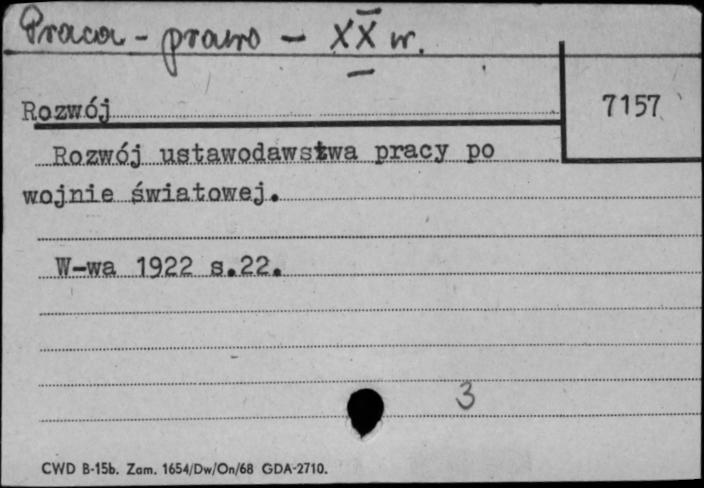 Praca - prawo - XX w.
Rozwój
7157
Rozwój ustawodawstwa pracy po
wojnie światowej.
W-wa 1922 s.22.
3
CWD B-15b. Zam. 1654/Dw/On/68 GDA-2710.